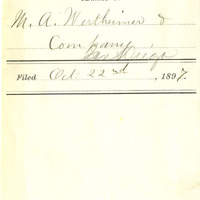 M. A. Wertheimer &
Company
Filed Oct. 22nd, 1897.